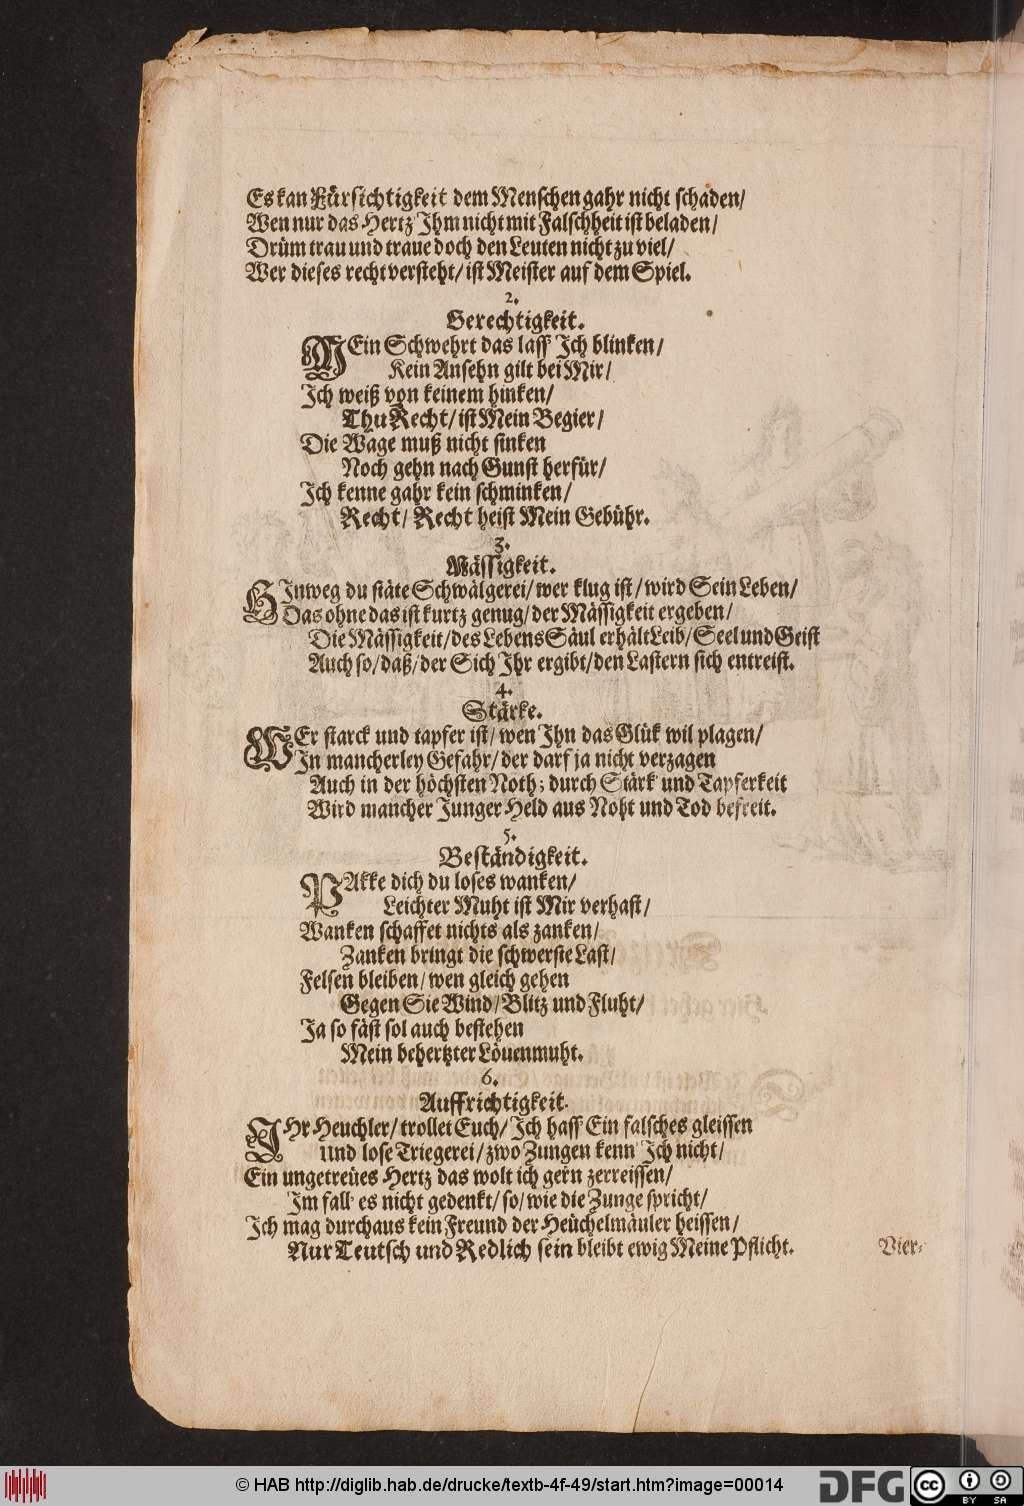 Es kan Fürsichtigkeit dem Menschen gahr nicht schaden/
Wen nur das Hertz Ihm nicht mit Falschheit ist beladen/
Drüm trau und traue doch den Leuten nicht zu viel/
Wer dieses recht versteht/ ist Meister auf dem Spiel.
2.
Gerechtigkeit.
MEin Schwehrt das lass' Ich blinken/
Kein Ansehn gilt bei Mir/
Ich weiß von keinem hinken/
Thu Recht/ ist Mein Begier/
Die Wage muß nicht sinken
Noch gehn nach Gunst herfür/
Ich kenne gahr kein schminken/
Recht/ Recht heist Mein Gebühr.
3.
Mässigkeit.
HInweg du stäte Schwälgerei/ wer klug ist/ wird Sein Leben/
Das ohne das ist kurtz genug/ der Mässigkeit ergeben/
Die Mässigkeit/ des Lebens Säul erhält Leib/ Seel und Geist
Auch so/ daß/ der Sich Ihr ergibt/ den Lastern sich entreist.
4.
Stärke.
WEr starck und tapfer ist/ wen Ihn das Glük wil plagen/
In mancherley Gefahr/ der darf ja nicht verzagen
Auch in der höchsten Noth; durch Stärk' und Tapferkeit
Wird mancher Junger Held aus Noht und Tod befreit.
5.
Beständigkeit.
PAkke dich du loses wanken/
Leichter Muht ist Mir verhast/
Wanken schaffet nichts als zanken/
Zanken bringt die schwerste Last/
Felsen bleiben/ wen gleich gehen
Gegen Sie Wind/ Blitz und Fluht/
Ja so fäst sol auch bestehen
Mein behertzter Löuenmuht.
6.
Auffrichtigkeit.
IHr Heuchler/ trollet Euch/ Ich hass' Ein falsches gleissen
Und lose Triegerei/ zwo Zungen kenn' Ich nicht/
Ein ungetreües Hertz das wolt ich gern zerreissen/
Im fall' es nicht gedenkt/ so/ wie die Zunge spricht/
Ich mag durchaus kein Freund der Heüchelmäuler heissen/
Nur Teutsch und Redlich sein bleibt ewig Meine Pflicht.
Vier-
© HAB http://diglib.hab.de/drucke/textb-4f-49/start.htm?image=00014
DFG
cc BY SA